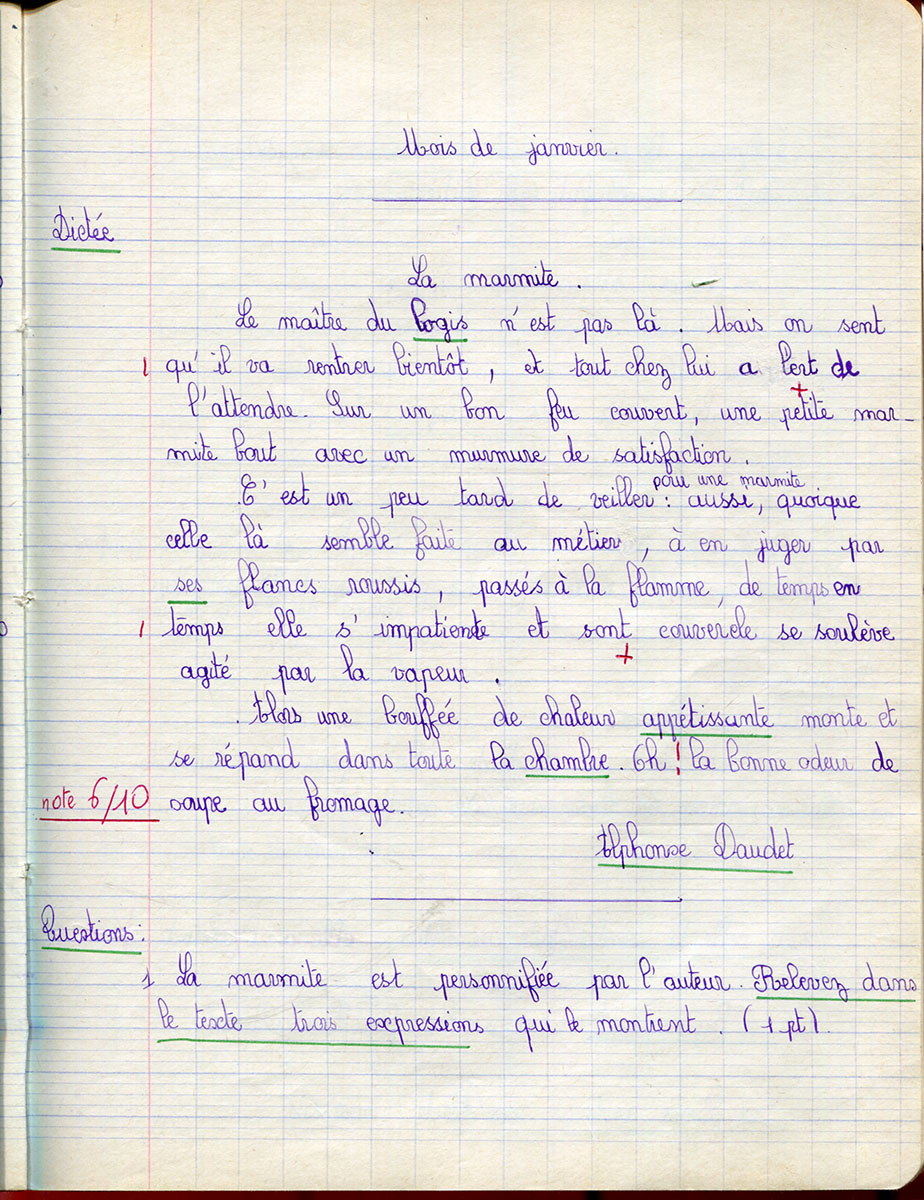 Mois de janvier.
Dictée
La marmite.
Le maître du logis n'est pas là. Mais on sent
1 qu'il va rentrer bientôt, et tout chez lui a l'ert de
+
l'attendre. Sur un bon feu couvert, une petite mar-
mite bout avec un murmure de satisfaction.
pour une marmite
C'est un peu tard de veiller : aussi, quoique
celle là semble faite au métier, à en juger par
ses flancs roussis, passés à la flamme, de temps en
1 temps elle s'impatiente et sont couvercle se soulève
+
agité par la vapeur.
Alors une bouffée de chaleur appétissante monte et
se répand dans toute la chambre. Oh ! la bonne odeur de
note 6/10 soupe au fromage.
Alphonse Daudet
Questions :
1 La marmite est personnifiée par l'auteur. Relevez dans
le texte trois expressions qui le montrent. (1 pt).